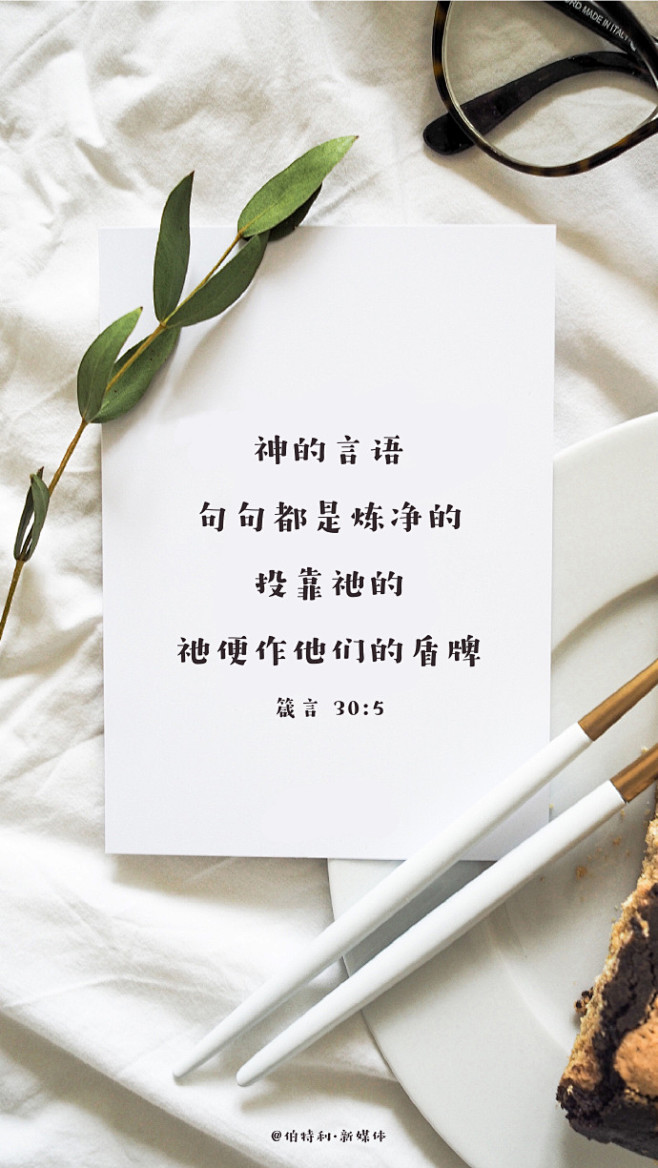 RD MADE IN ITALY
神的言语
句句都是炼净的
投靠祂的
祂便作他们的盾牌
箴言 30:5
@伯特利·新媒体